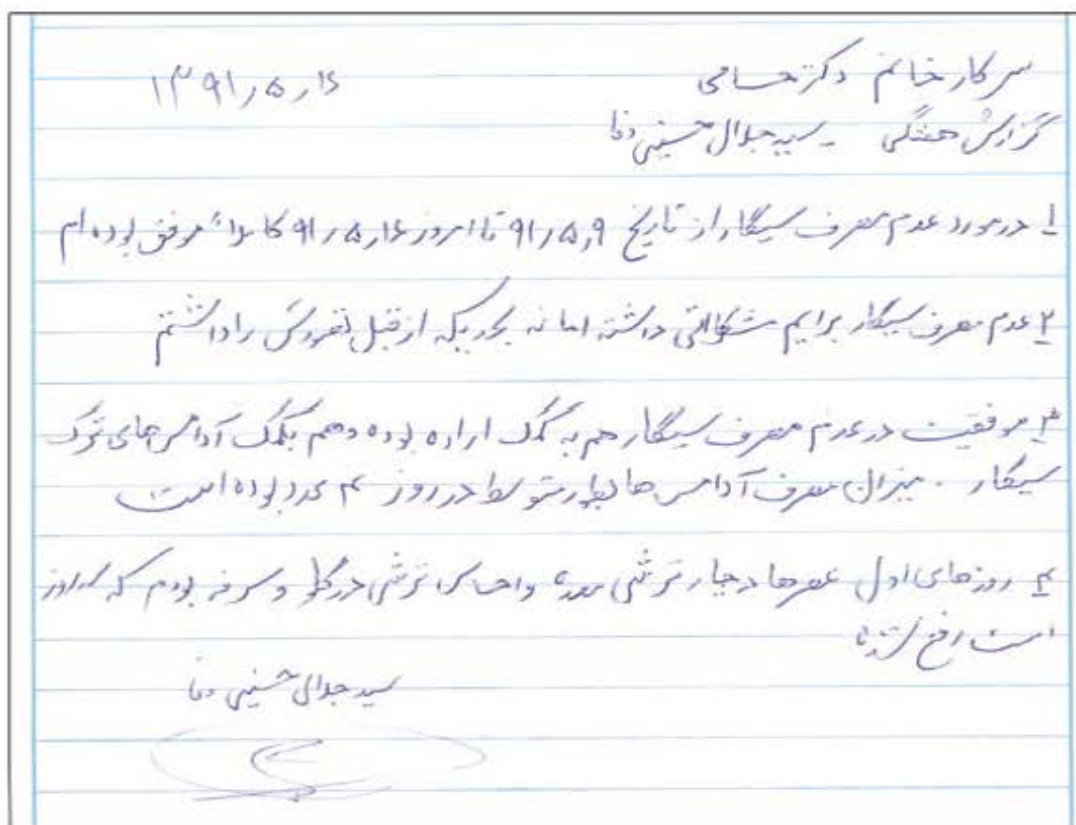 سرکار خانم دکتر حسامی ۱۳۹۱٫۵٫۱۶
گزارش هفتگی - سید جلال حسینی وفا
۱ در مورد عدم مصرف سیگار از تاریخ ۹۱٫۵٫۹ تا امروز ۹۱٫۵٫۱۶ کاملاً موفق بوده ام
۲ عدم مصرف سیگار برایم مشکلاتی داشته اما نه بحدیکه از قبل تصورش را داشتم
۳ موفقیت در عدم مصرف سیگار هم به کمک اراده بوده و هم بکمک آدامس های ترک
سیگار . میزان مصرف آدامس ها بطور متوسط در روز ۳ عدد بوده است
۴ روزهای اول عصرها دچار ترشی معده و احساس ترشی در گلو و سرفه بودم که روز
است رفع شده
سید جلال حسینی وفا